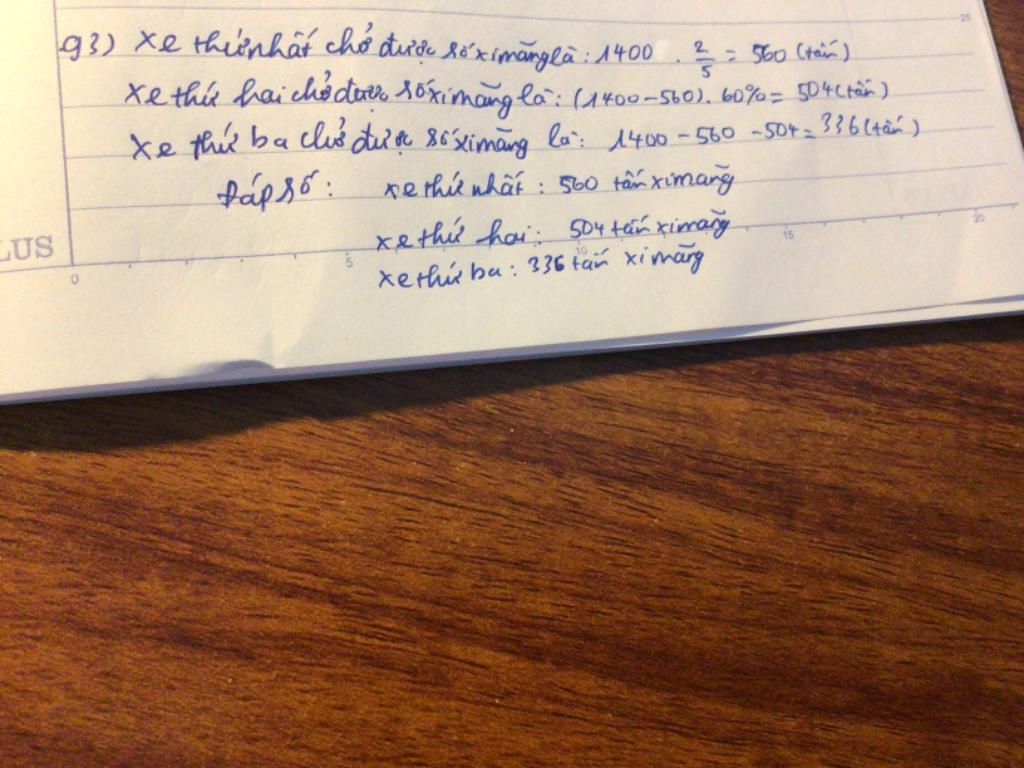 93) Xe thứ nhất chở được số xi măng là: 1400 . 2/5 = 560 (tấn)
Xe thứ hai chở được số xi măng là: (1400-560). 60% = 504 (tấn)
Xe thứ ba chở được số xi măng là: 1400 - 560 - 504 = 336 (tấn)
Đáp số: xe thứ nhất: 560 tấn xi măng
xe thứ hai: 504 tấn xi măng
xe thứ ba: 336 tấn xi măng
LUS
0 5 10 15 20
25